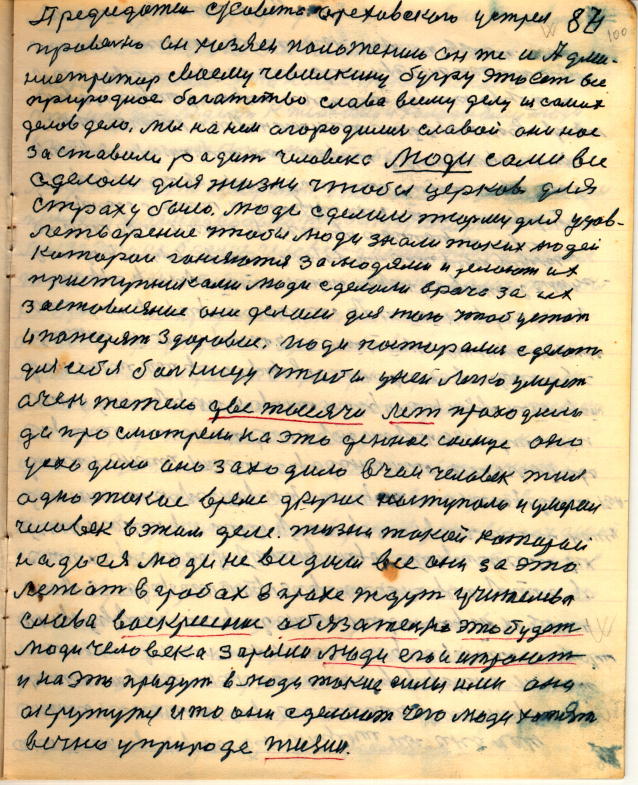 Придидатем Совета ореховского устрел 87
провачно он хозяен положению он же и Адми-
нистратор своему чевилкину бугру это ест все
природное богатство слава всему делу из самих
делов дело. мы на нем огородилис славой они нас
заставили радит человека люди сами все
сделоли для жизни чтобы церков для
страху было. люди сделили тюрму для удов-
летварение чтобы люди знали таких людей
котораи гоняются за людями и делают их
приступниками люди сделоли врача за их
заставление они делали для таго чтоб устат
и потерят здоровие. люди постаралис сделат
для себя болницу чтобы у ней легко умерет
очен тежело две тысячи лет праходило
да просмотрели на это денное солнце оно
усходило оно заходило в чем человек жил
одно такие время другие поступало и умерал
человек в этам деле. жизни такой которай
надося люди не видили все они за это
лежат в гробах в прахе ждут учителя
слова васкресение обязательно это будет
люди человека зарыли люди его и атроют
и на это придут в люди такие силы ими оно
окружутся и то они сделают чего люди хотят
вечно у природе жизни.
100